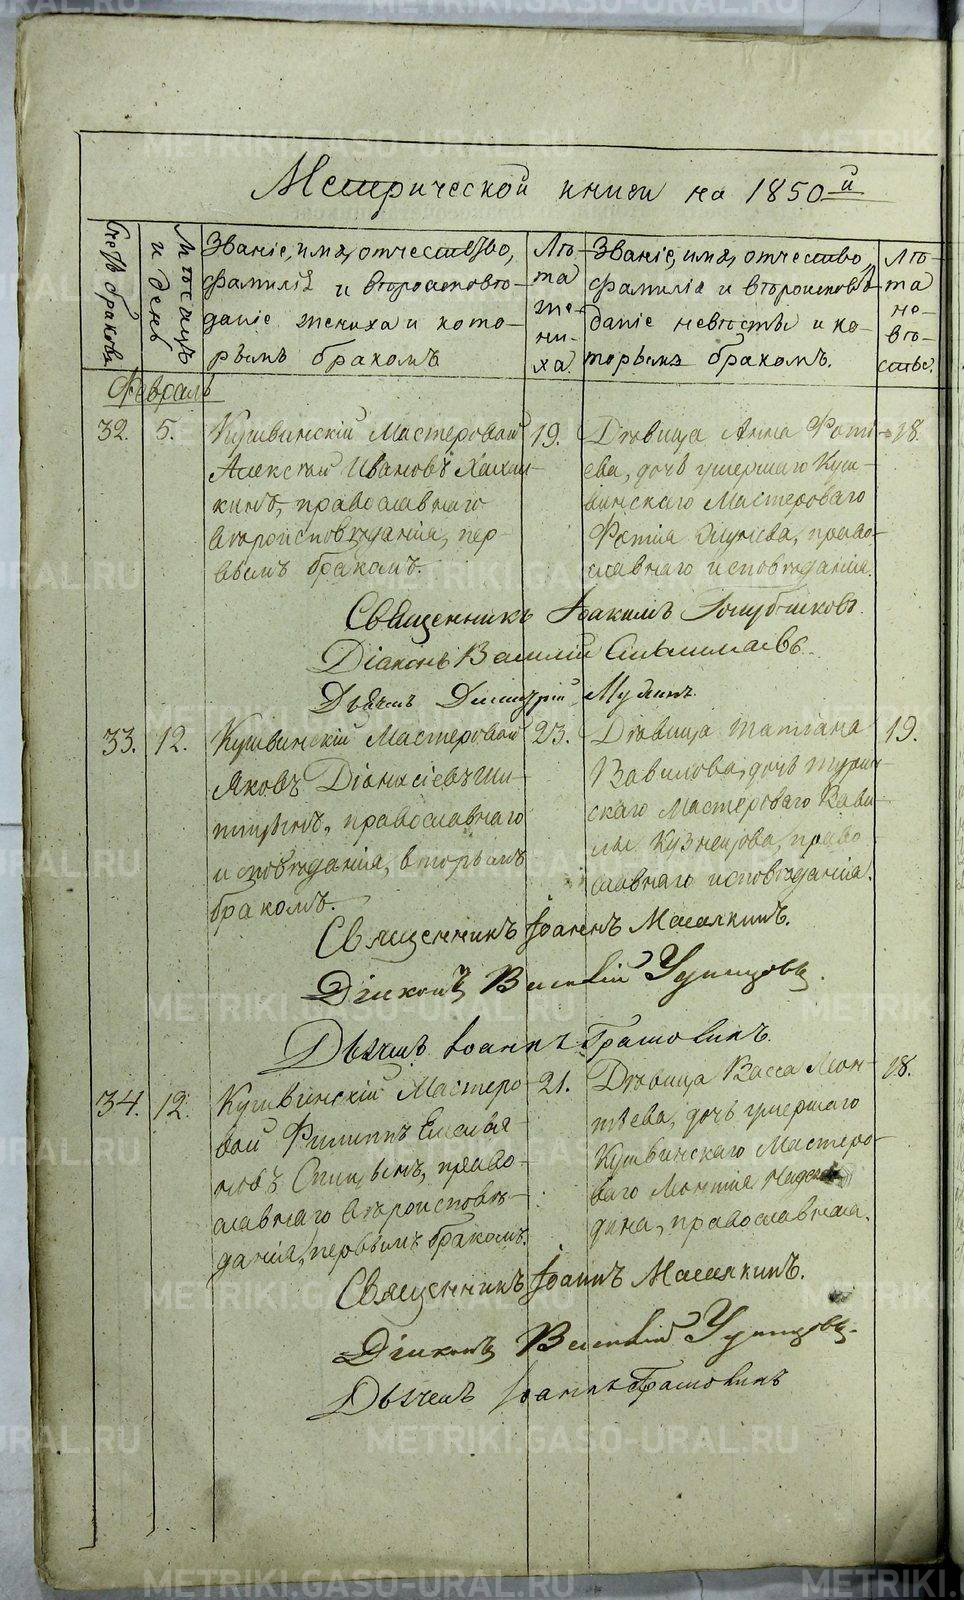 Метрической книги на 1850й
Счетъ браковъ
Мѣсяцъ и день
Званіе, имя, отчество,
фамилія и вѣроисповѣ-
даніе жениха и кото-
рымъ бракомъ
Лѣ-
та
же-
ни-
ха.
Званіе, имя, отчество,
фамилія и вѣроисповѣ-
даніе невѣсты и ко-
торымъ бракомъ.
Лѣ-
та
не-
вѣ-
сты.
Февраль
32. 5.
Кушвинскій Мастеровой
Алексѣй Ивановъ
православнаго
вѣроисповѣданія, пер-
вымъ бракомъ.
19.
Дѣвица Анна Фоті-
ева, дочь умершаго Куш-
винскаго Мастероваго
Фотія православнаго исповѣданія.
18.
Священникъ Іакимъ
Діаконъ Василій
Дьячекъ Димитрій
33. 12.
Кушвинскій Мастеровой
Яковъ Діонисіевъ Ши-
православнаго
исповѣданія, вторымъ
бракомъ.
23.
Дѣвица Татіана
Вавилова, дочь Турин-
скаго Мастероваго Вави-
лы Кузнецова, право-
славнаго исповѣданія.
19.
Священникъ Іоаннъ
Діаконъ Василій Удинцовъ.
Дьячекъ Іоаннъ
34. 12.
Кушвинскій Мастеро-
вой Филиппъ Емелья-
новъ Спицынъ, право-
славнаго вѣроисповѣ-
данія, первымъ бракомъ.
21.
Дѣвица Васса Леон-
тѣева, дочь умершаго
Кушвинскаго Мастеро-
ваго Леонтія
православныя.
18.
Священникъ Іоаннъ
Діаконъ Василій Удинцовъ.
Дьячекъ Іоаннъ
METRIKI.GASO-URAL.RU